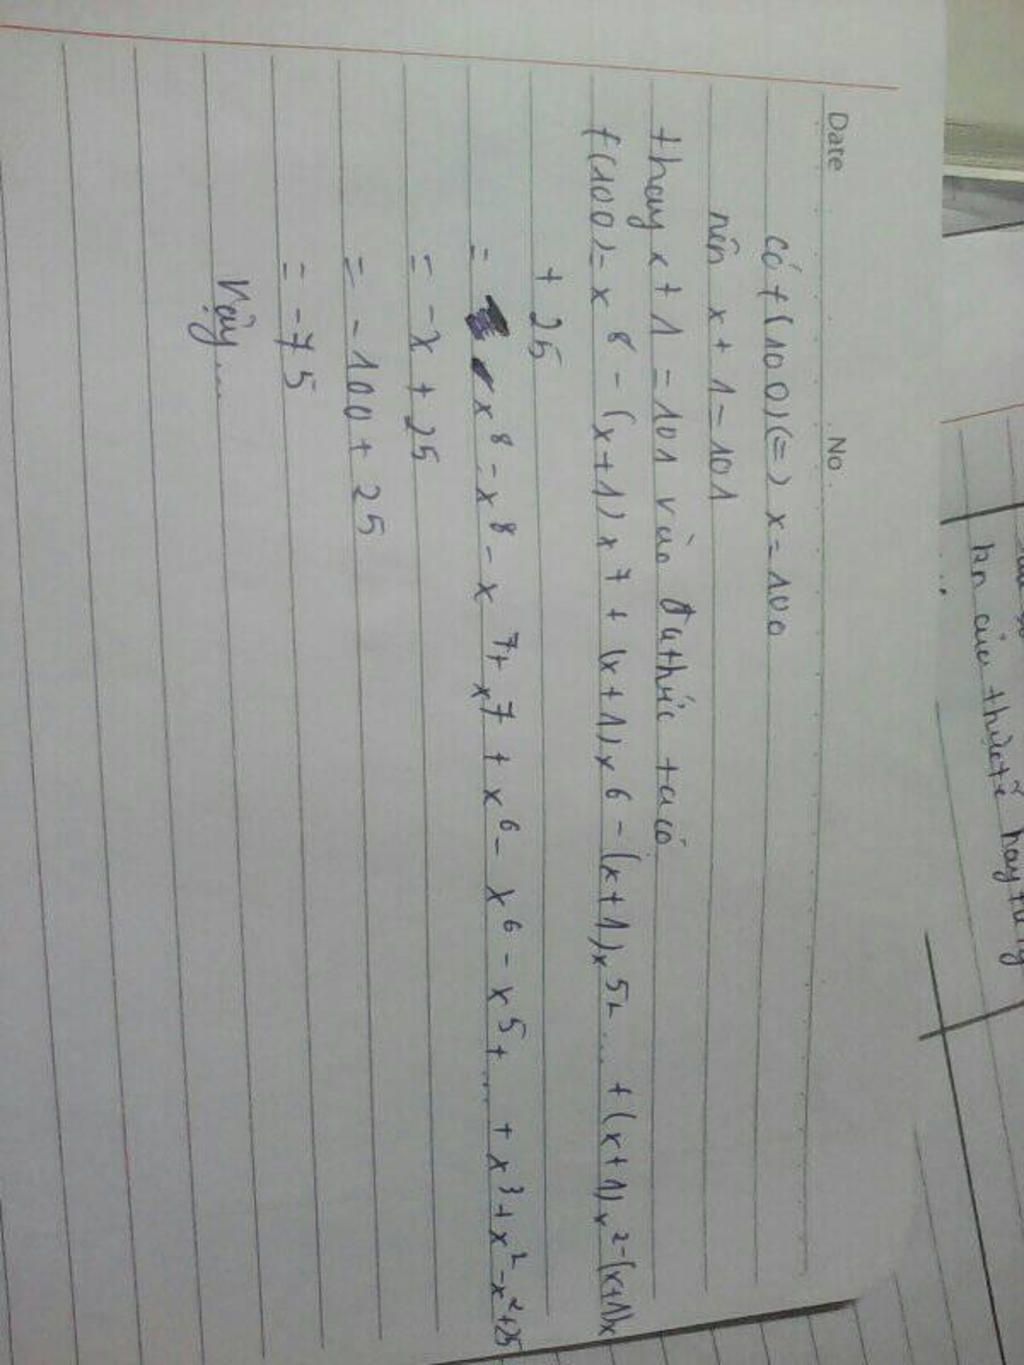 Date No.
có f(100) (=) x = 100
nên x + 1 = 101
thay x + 1 = 101 vào đathức tacó
f(100) = x⁸ - (x+1)x⁷ + (x+1)x⁶ - (x+1)x⁵+ ... + (x+1)x² - (x+1)x
+ 25
= x⁸ - x⁸ - x⁷ + x⁷ + x⁶ - x⁶ - x⁵ + ... + x³ + x² - x² + 25
= -x + 25
= -100 + 25
= -75
Vậy...
kn của thướctế hay từ lý